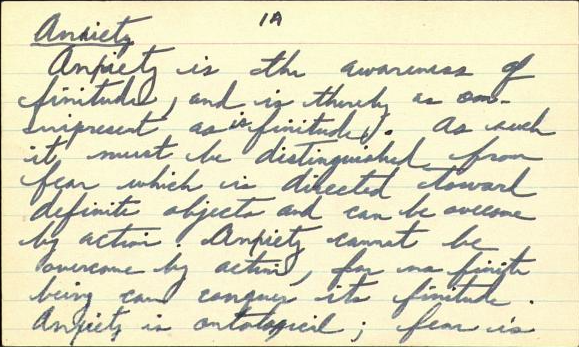 1A
Anxiety
Anxiety is the awareness of
finitude, and is thereby as om-
nipresent as is finitude. As such
it must be distinguished from
fear which is directed toward
definite objects and can be overcome
by action. Anxiety cannot be
overcome by action, for no finite
being can conquer its finitude.
Anxiety is ontological; fear is